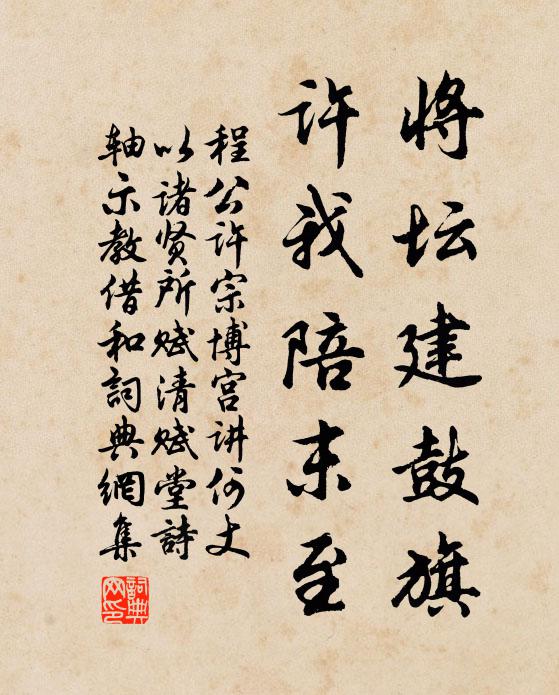 将坛建鼓旗
许我陪末至
程公许宗博宫讲何丈
以诸贤所赋清赋堂詩
轴示教借和詞典網集
詞典
网印